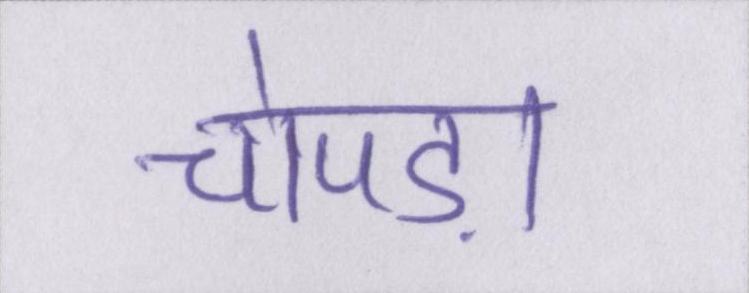 चोपड़ा